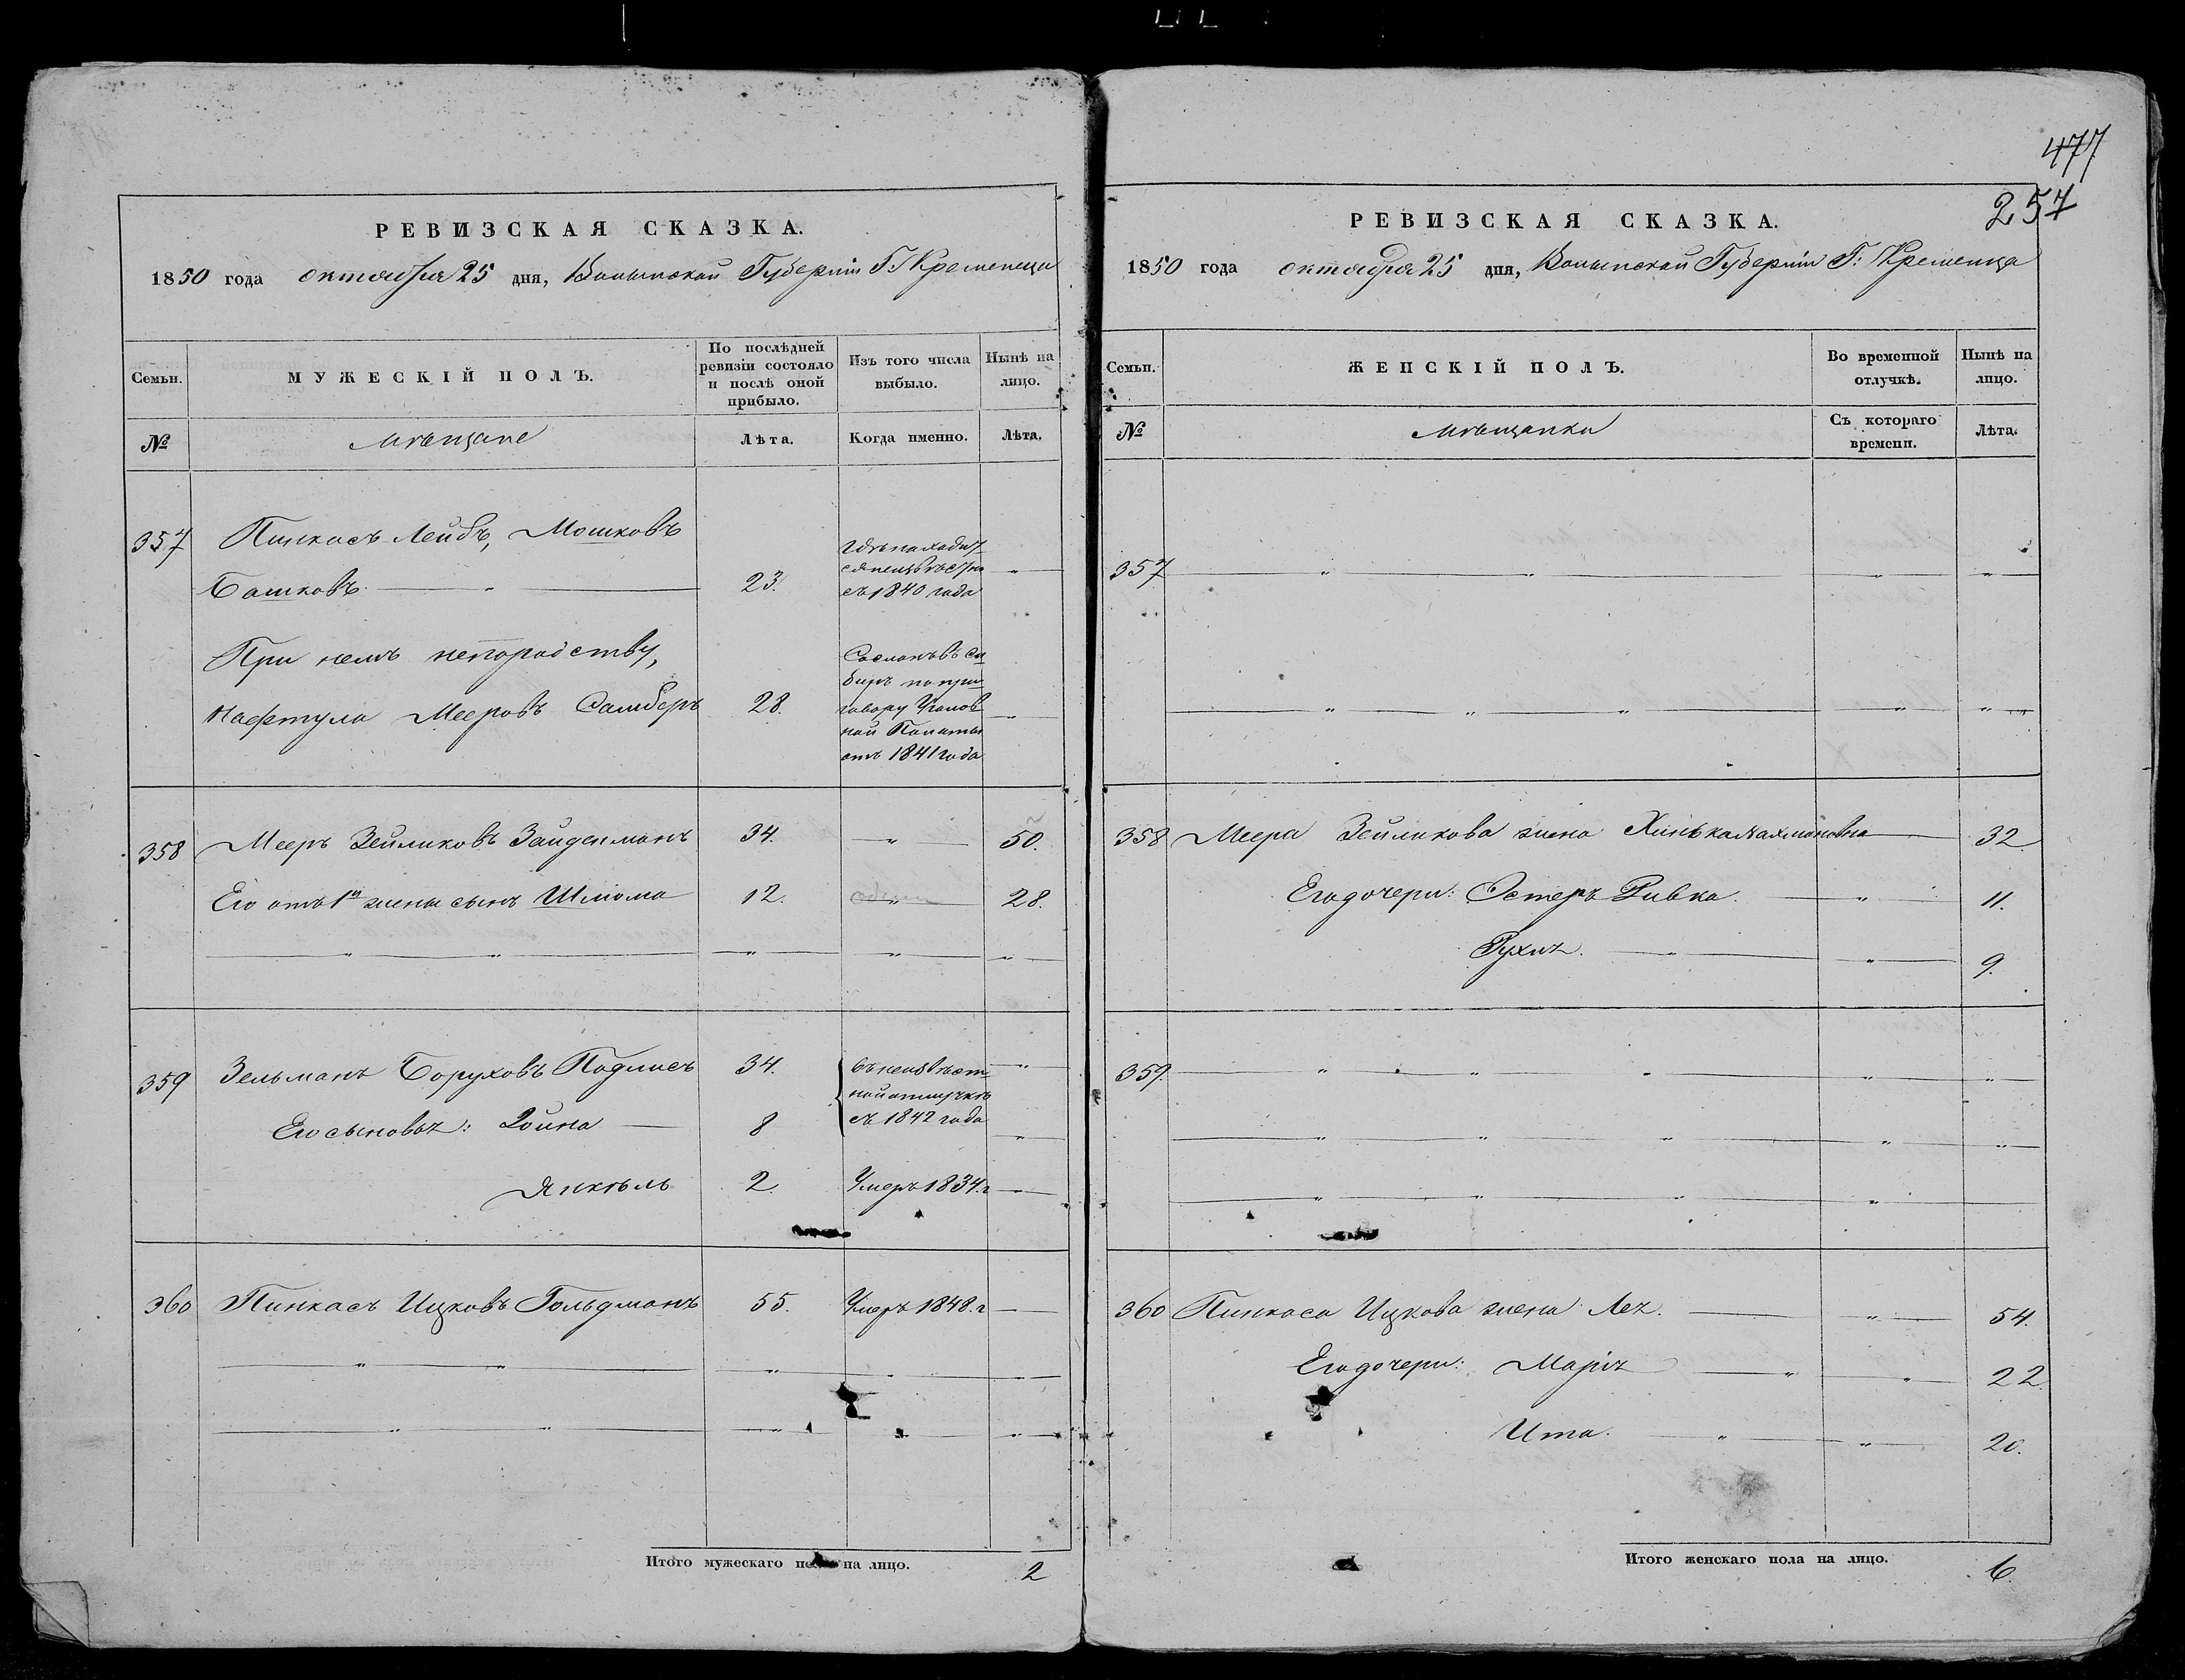 477
257
РЕВИЗСКАЯ СКАЗКА.
1850 года октября 25 дня, Волынской Губерніи Г. Кременца
Семьи.
МУЖЕСКІЙ ПОЛЪ.
По послѣдней ревизіи состояло и послѣ оной прибыло.
Изъ того числа выбыло.
Нынѣ на лицо.
№
Мѣщане
Лѣта.
Когда именно.
Лѣта.
357 Пинкасъ Лейбъ, Мошковъ
Башковъ 23.
съ 1840 года
При немъ непородству,
Нафтула Мееровъ Самберъ 28.
Сосланъ въ Си
биръ по при
говору Уголов
ной Палаты
отъ 1841 года
358 Мееръ Зейликовъ Зайденманъ 34. " 50.
Его отъ 1й жены сынъ Шлома 12. " 28.
359 Зельманъ Боруховъ Подлисъ 34.
въ неизвѣст
ной отлучкѣ
съ 1842 года
Его сыновья: Йойна 8
Янкель 2. Умеръ 1834 г
360 Пинкасъ Ицковъ Гольдманъ 55. Умеръ 1848 г
Итого мужескаго пола на лицо. 2
РЕВИЗСКАЯ СКАЗКА.
1850 года октября 25 дня, Волынской Губерніи Г: Кременца
Семьи.
ЖЕНСКІЙ ПОЛЪ.
Во временной отлучкѣ.
Нынѣ на лицо.
№
Мѣщанки
Съ котораго времени.
Лѣта.
357
358 Меера Зейликова жена Хинька Нахмановна 32.
Его дочери: Эстеръ Ривка 11.
Рухля 9.
359.
360 Пинкаса Ицкова жена Лея. 54.
Его дочери: Марія 22.
Ита. 20.
Итого женскаго пола на лицо. 6.